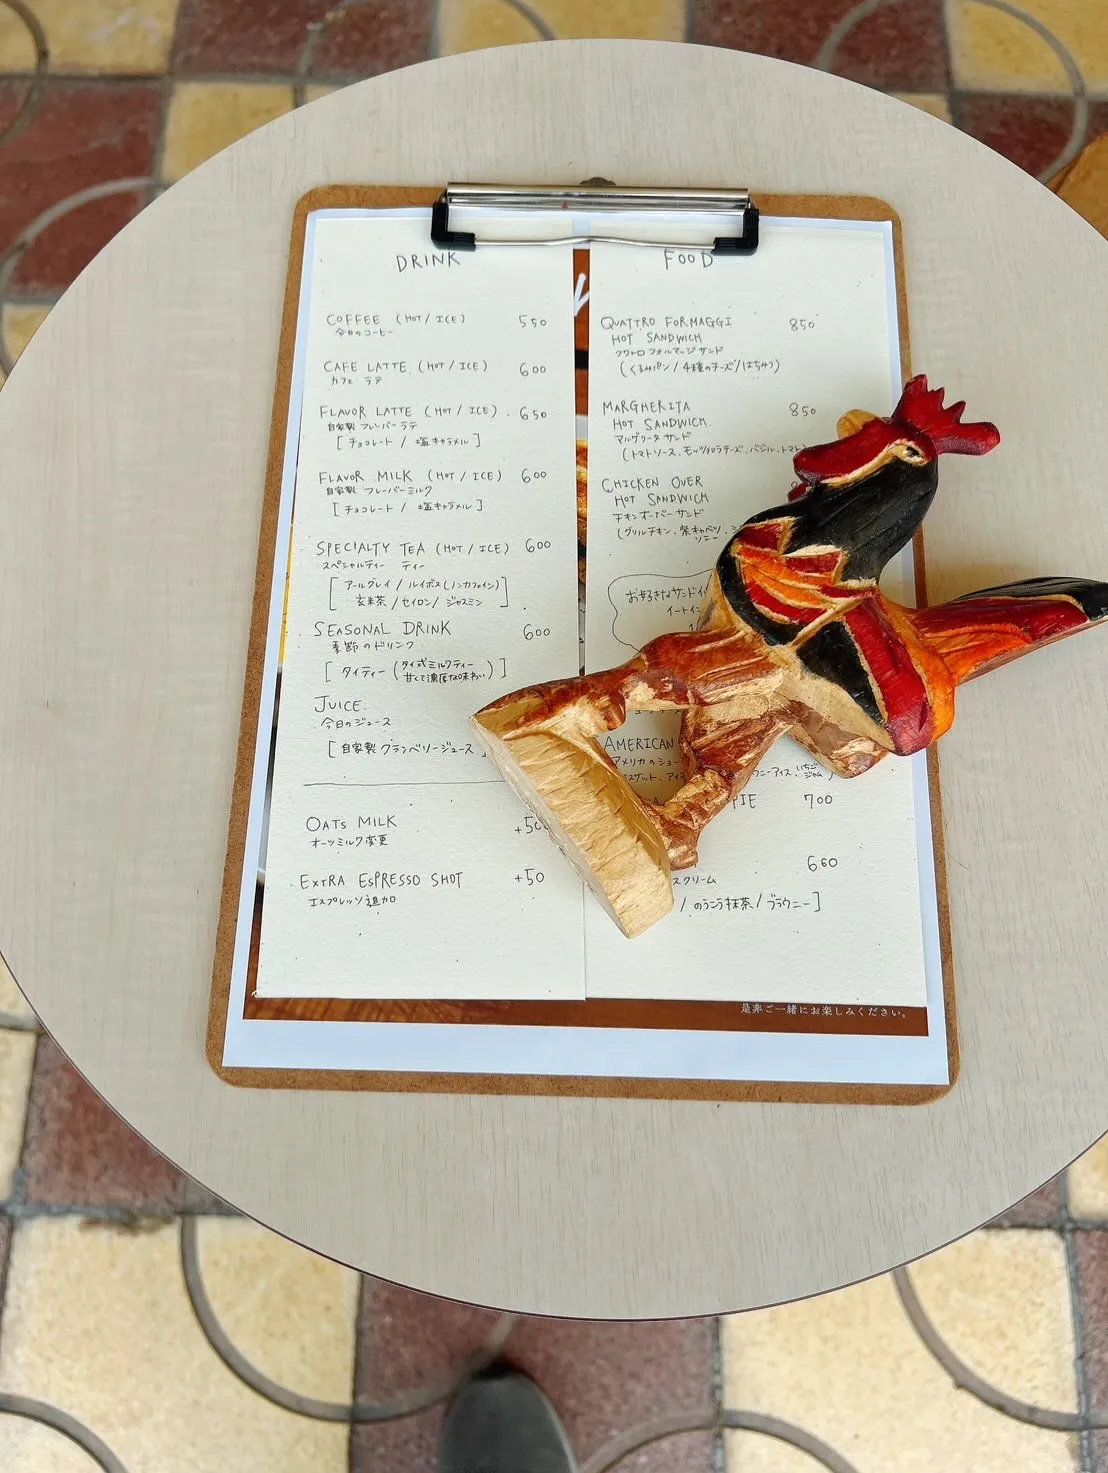 DRINK
COFFEE (HOT / ICE) 550
今日のコーヒー
CAFE LATTE (HOT / ICE) 600
カフェ ラテ
FLAVOR LATTE (HOT / ICE) 650
自家製 フレーバーラテ
[チョコレート / 塩キャラメル]
FLAVOR MILK (HOT / ICE) 600
自家製 フレーバーミルク
[チョコレート / 塩キャラメル]
SPECIALTY TEA (HOT / ICE) 600
スペシャルティー ティー
[アールグレイ / ルイボス(ノンカフェイン)
玄米茶 / セイロン / ジャスミン]
SEASONAL DRINK 600
季節のドリンク
[タイティー (タイ式ミルクティー
甘くて濃厚な味わい)]
JUICE
今日のジュース
[自家製 クランベリージュース
OATS MILK +50
オーツミルク変更
EXTRA ESPRESSO SHOT +50
エスプレッソ追加
FOOD
QUATTRO FORMAGGI 850
HOT SANDWICH
クワトロ フォルマッジ サンド
(くるみパン / 4種のチーズ / はちみつ)
MARGHERITA 850
HOT SANDWICH
マルゲリータ サンド
(トマトソース、モッツァレラチーズ、バジル、トマト
CHICKEN OVER
HOT SANDWICH
チキンオーバーサンド
(グリルチキン、紫キャベツ、
お好きなサンドイ
イートイン
AMERICAN
アメリカのショー
スケット、アイス
ニーアイス、いちご
ジャム)
PIE 700
660
スクリーム
/ のうこう抹茶 / ブラウニー]
是非ご一緒にお楽しみください。